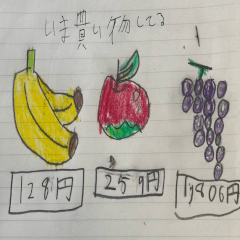 いま買い物してる
128円
259円
1,806円